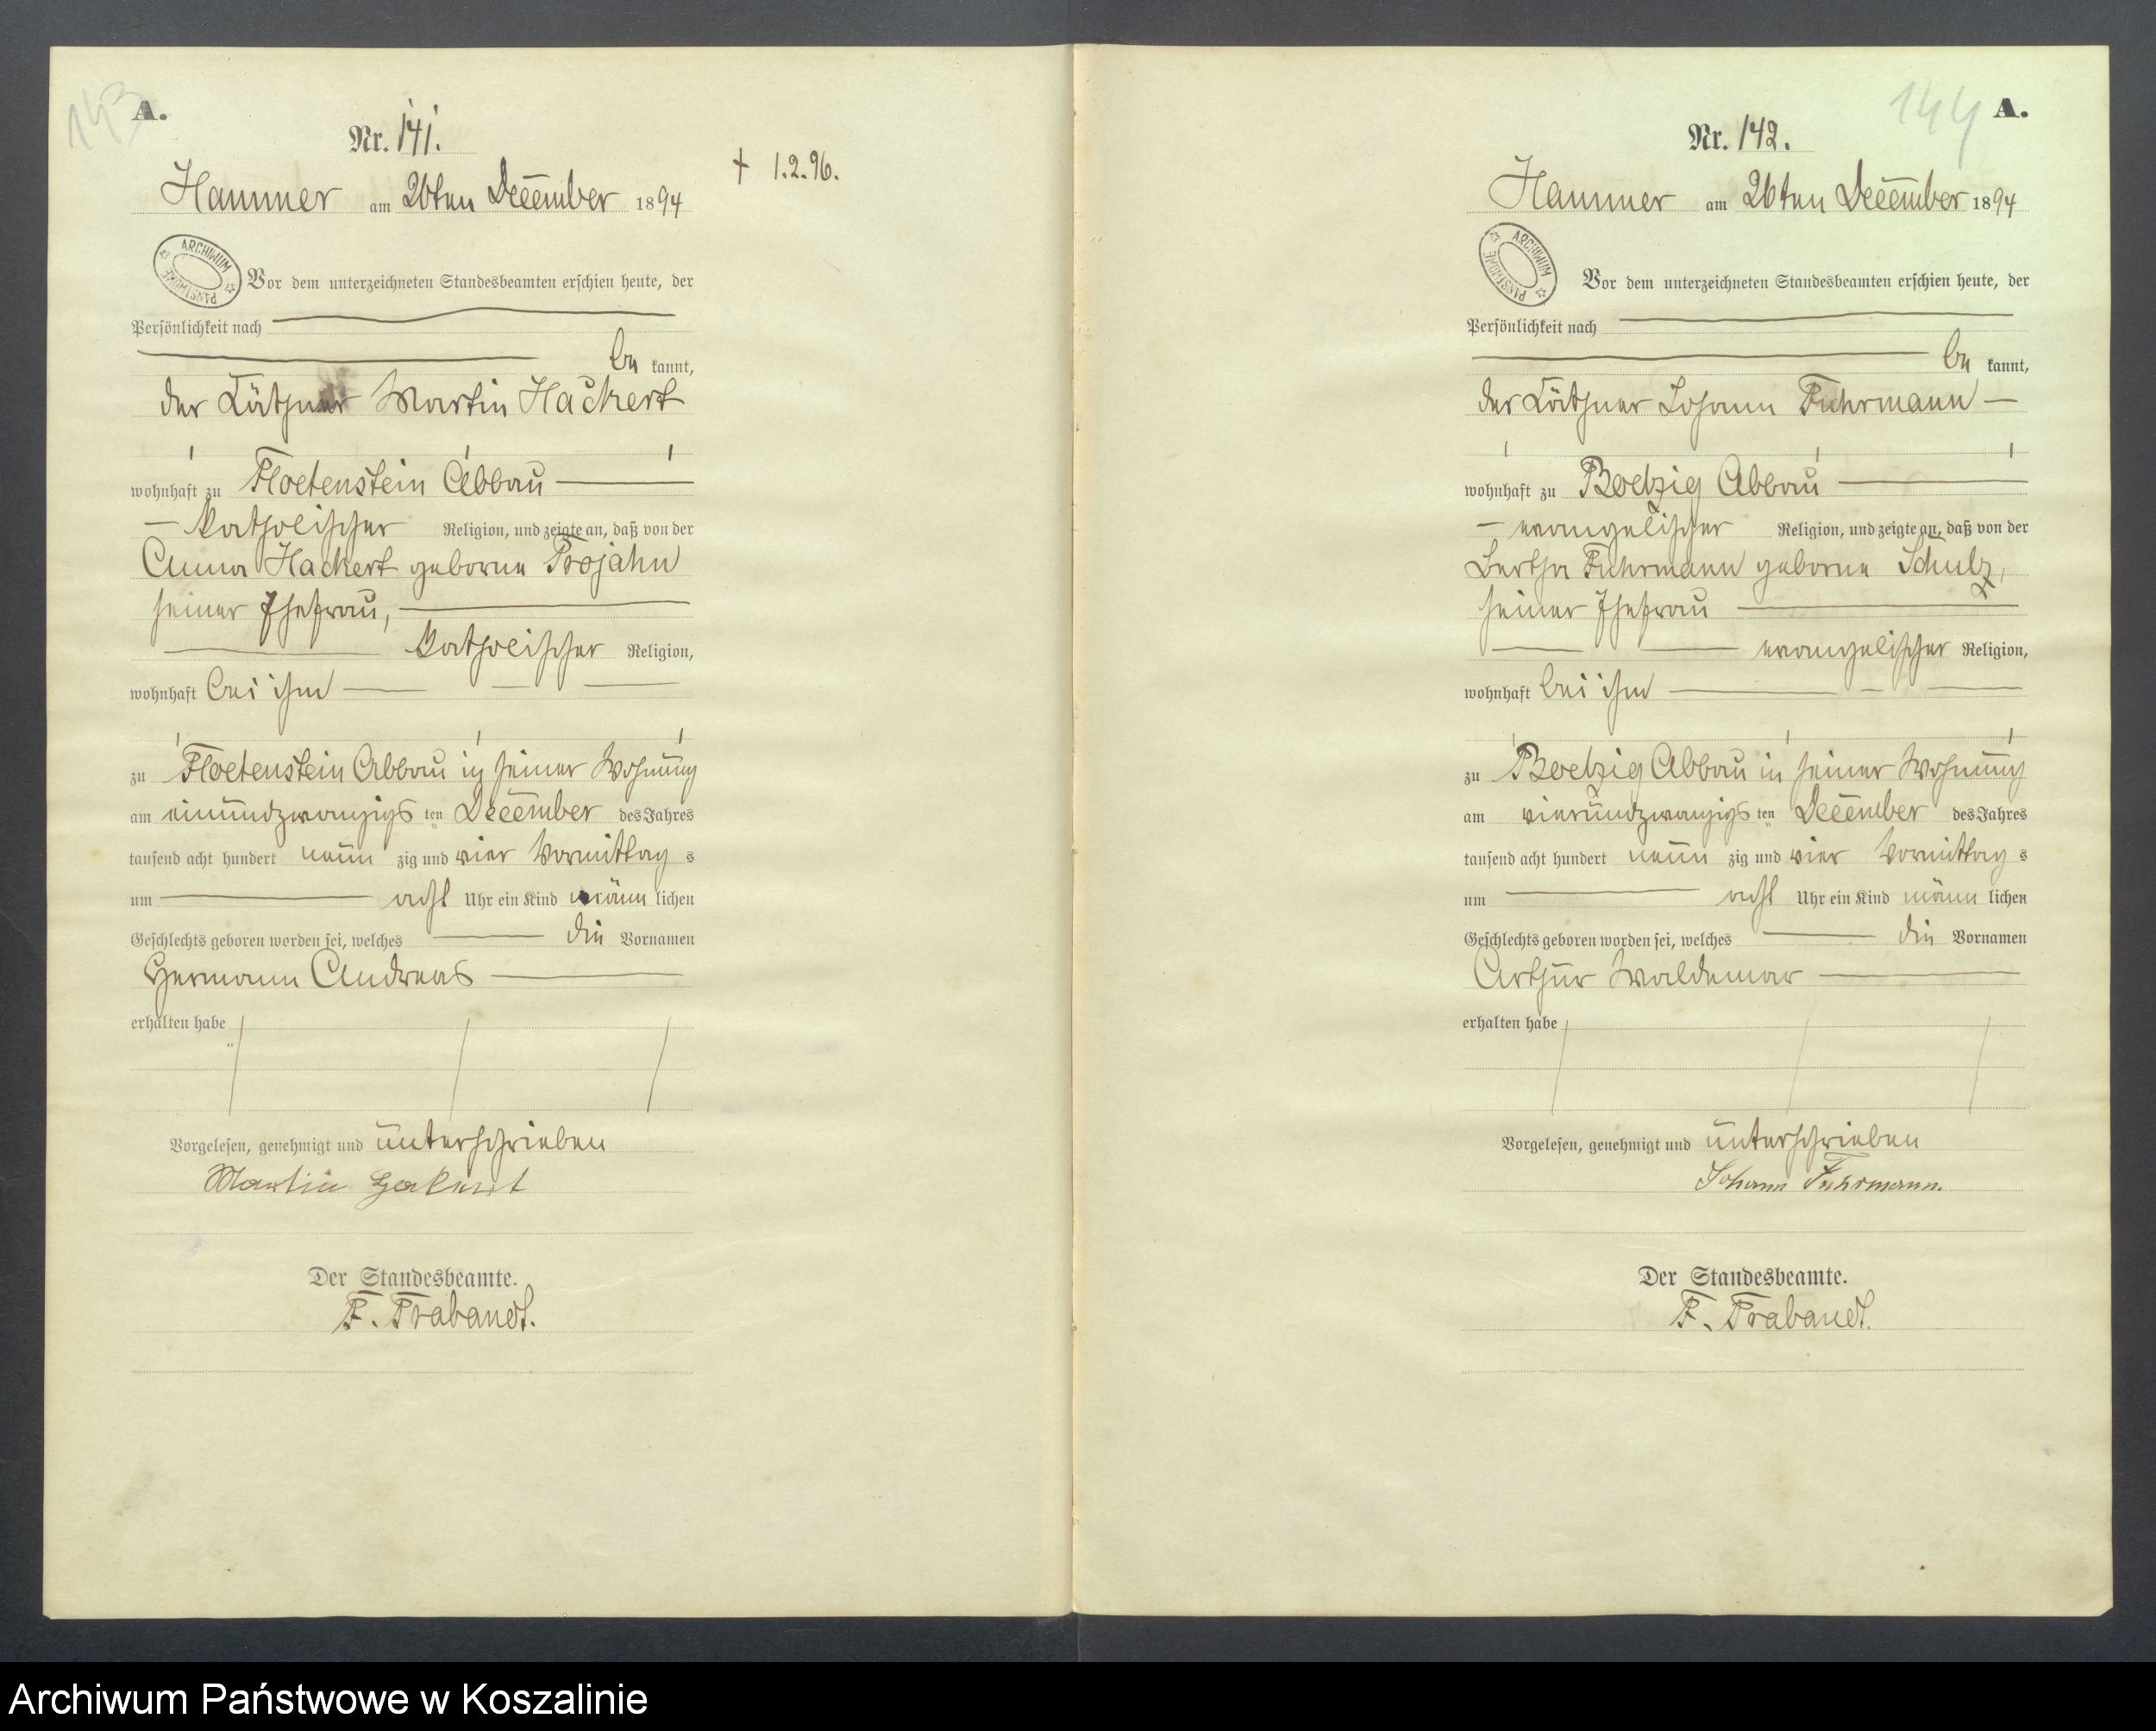 143
A.
Nr. 141.
† 1.2.96.
Hammer am 26ten December 1894
ARCHIWUM PAŃSTWOWE
Vor dem unterzeichneten Standesbeamten erschien heute, der
Persönlichkeit nach
be kannt,
der Käthner Martin Hackert
wohnhaft zu Floetenstein Abbau
katholischer Religion, und zeigte an, daß von der
Anna Hackert geborne Projahn
seiner Ehefrau,
katholischer Religion,
wohnhaft bei ihm
zu Floetenstein Abbau in seiner Wohnung
am einundzwanzigs ten December des Jahres
tausend acht hundert neun zig und vier Vormittag s
um acht Uhr ein Kind männ lichen
Geschlechts geboren worden sei, welches die Vornamen
Hermann Andreas
erhalten habe
Vorgelesen, genehmigt und unterschrieben
Martin Hakert
Der Standesbeamte.
F. Trabandt.
144
A.
Nr. 142.
Hammer am 26ten December 1894
ARCHIWUM PAŃSTWOWE
Vor dem unterzeichneten Standesbeamten erschien heute, der
Persönlichkeit nach
be kannt,
der Käthner Johann Fuhrmann
wohnhaft zu Boelzig Abbau
evangelischer Religion, und zeigte an, daß von der
Bertha Fuhrmann geborne Schulz,
seiner Ehefrau
evangelischer Religion,
wohnhaft bei ihm
zu Boelzig Abbau in seiner Wohnung
am vierundzwanzigs ten December des Jahres
tausend acht hundert neun zig und vier Vormittag s
um acht Uhr ein Kind männ lichen
Geschlechts geboren worden sei, welches die Vornamen
Arthur Waldemar
erhalten habe
Vorgelesen, genehmigt und unterschrieben
Johann Fuhrmann.
Der Standesbeamte.
F. Trabandt.
Archiwum Państwowe w Koszalinie